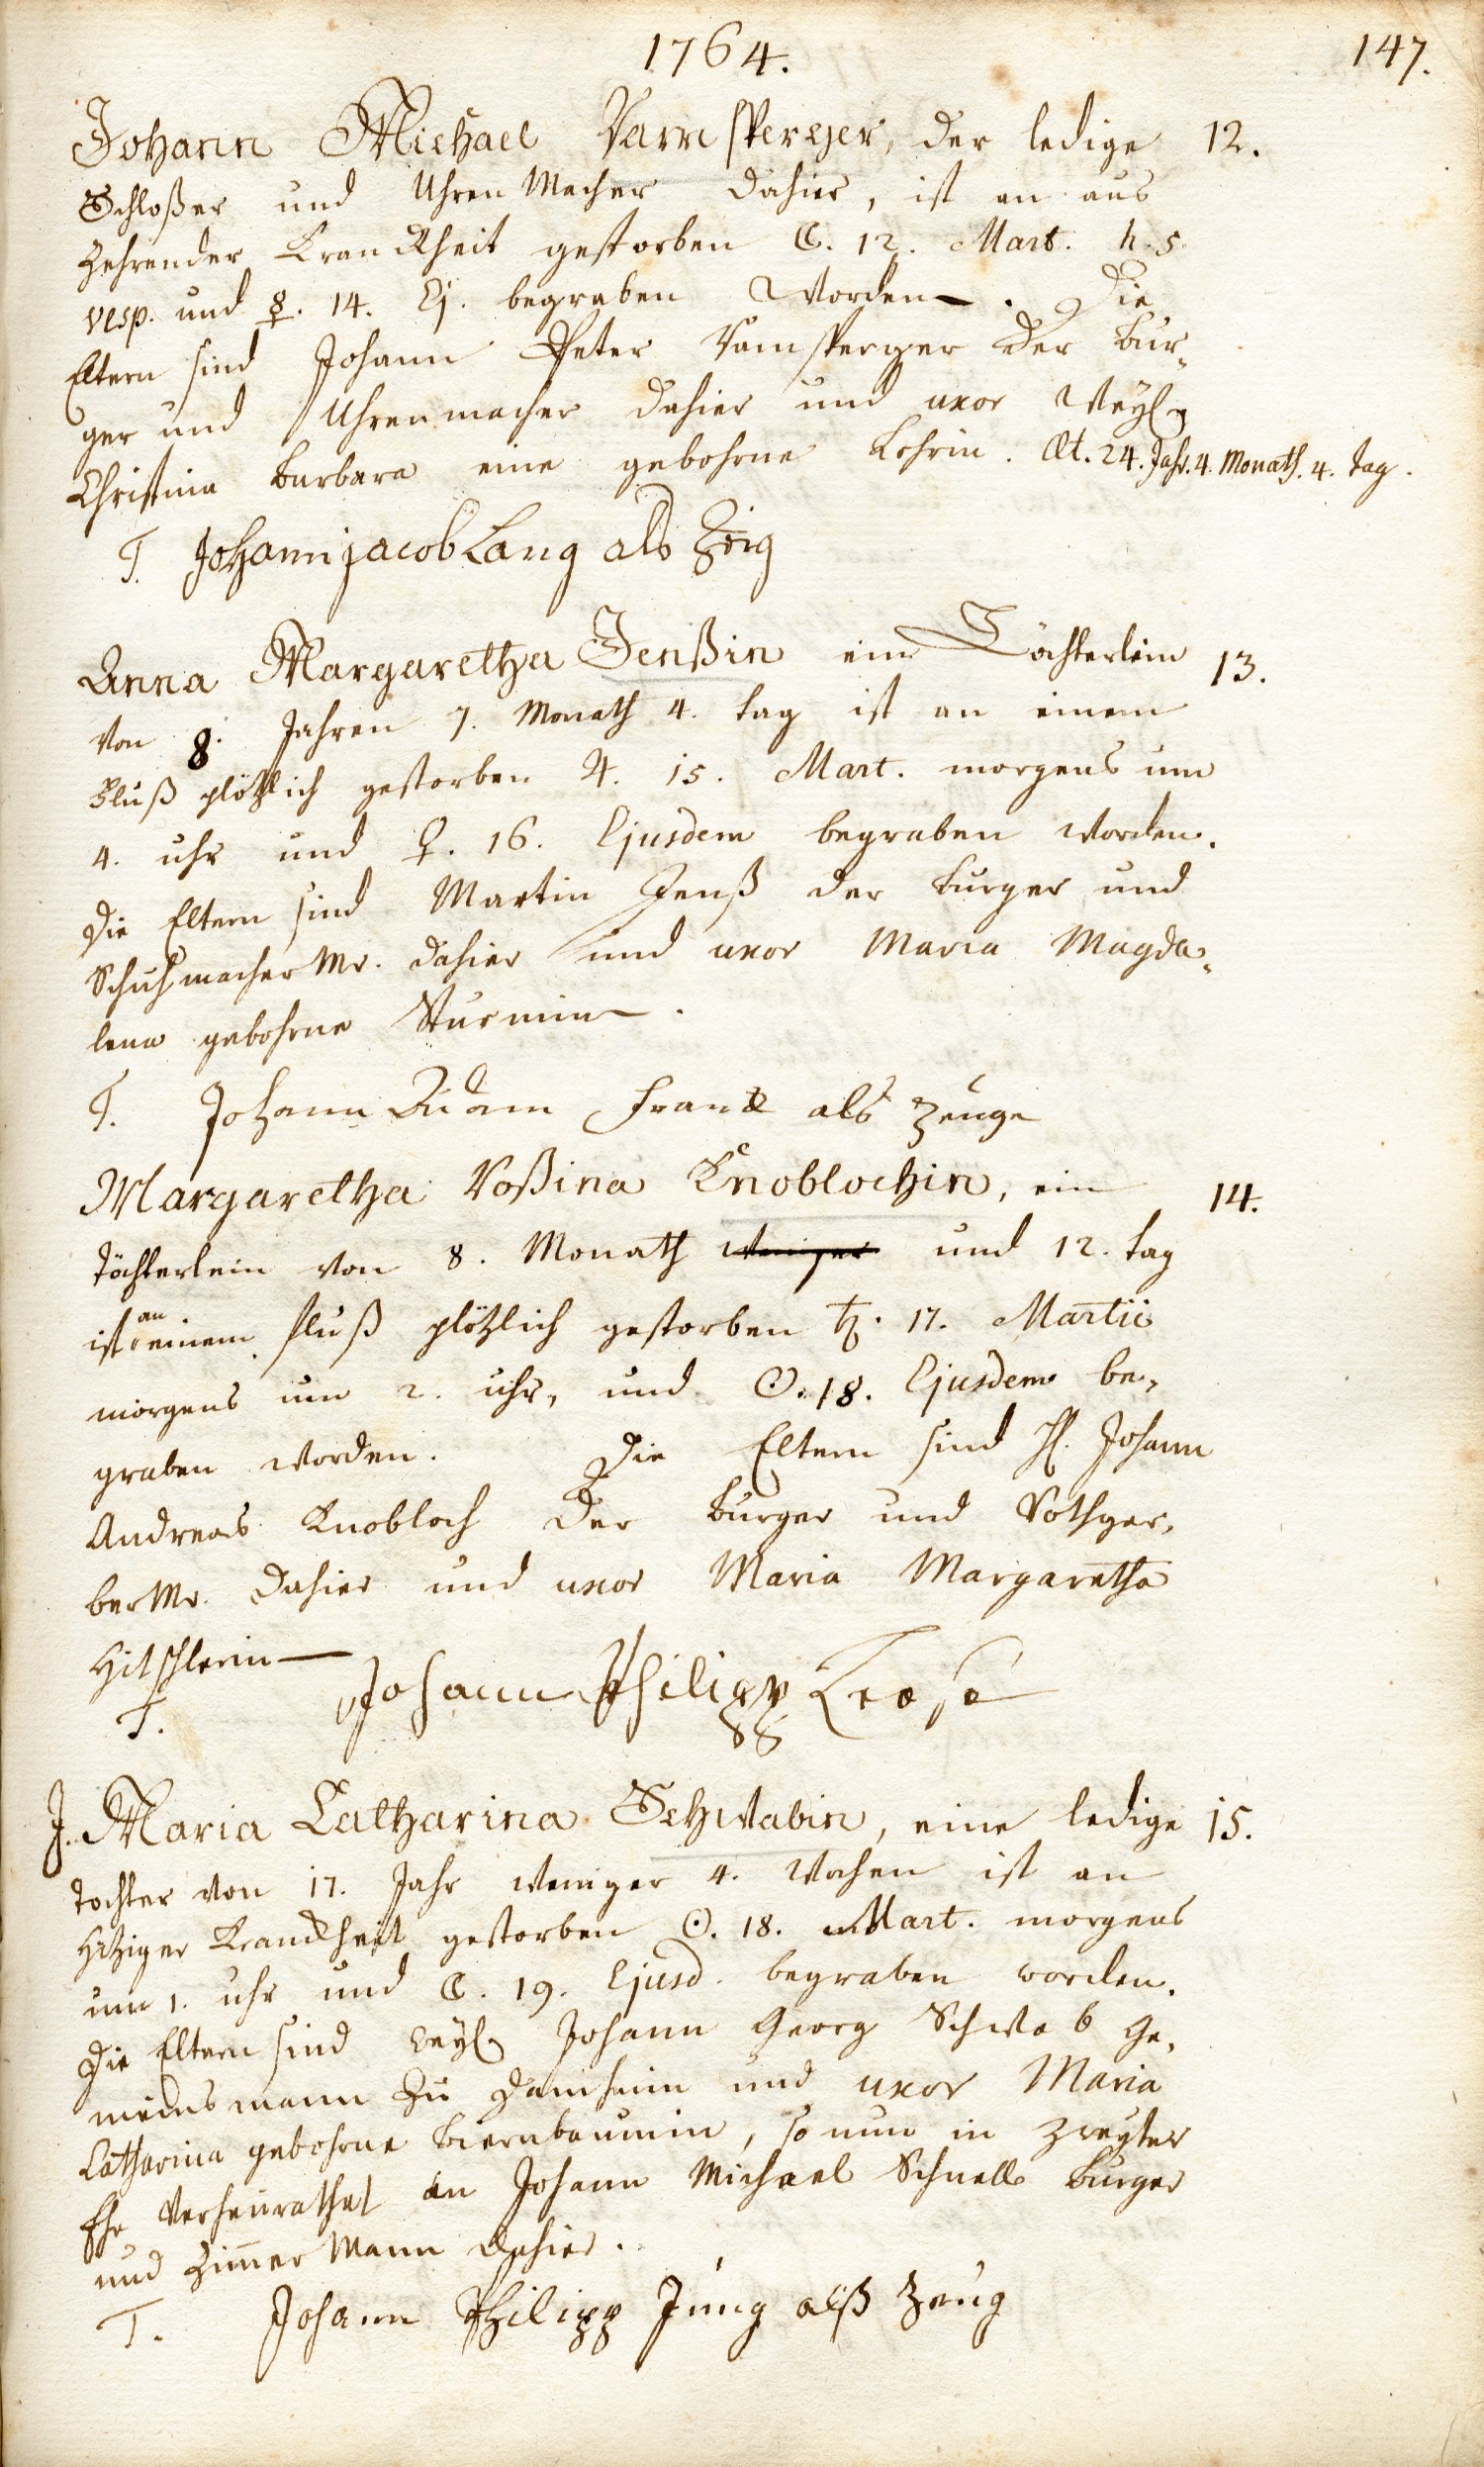 1764.
147.
Johann Michael Ramsperger, der ledige 12.
Schloßer und Uhren Macher dahier, ist an aus
zehrender Kranckheit gestorben ☾. 12. Mart. h. 5.
vesp. und ☿. 14. Ej. begraben worden. Die
Eltern sind Johann Peter Ramsperger der Bur„
ger und Uhrenmacher dahier und uxor weyl.
Christina Barbara eine gebohrne Lehrin. Æt. 24. Jahr. 4. Monath. 4. tag.
T. Johann jacob Lang als Zeig
Anna Margaretha Jenßin ein Töchterlein 13.
von 8. Jahren 7. Monath 4. tag ist an einem
Fluß plötzlich gestorben ♃. 15. Mart. morgens um
4. uhr und ♀. 16. Ejusdem begraben worden.
Die Eltern sind Martin Jenß der Burger und
Schuhmacher Mr. dahier und uxor Maria Magda„
lena gebohrne Sturmin.
T. Johann Adam Frantz als Zeuge
Margaretha Roßina Knoblochin, ein 14.
Töchterlein von 8. Monath weniger und 12. tag
ist an einem fluß plötzlich gestorben ♄. 17. Martii
morgens um 2. uhr, und ☉. 18. Ejusdem be„
graben worden. Die Eltern sind H. Johann
Andreas Knobloch der Burger und Rothger„
ber Mr. dahier und uxor Maria Margaretha
Hitschlerin
T. Johann Philipp
J. Maria Catharina Schwabin, eine ledige 15.
Tochter von 17. Jahr weniger 4. Wochen ist an
hitziger Kranckheit gestorben ☉. 18. Mart. morgens
um 1. uhr und ☾. 19. Ejusd. begraben worden.
Die Eltern sind weyl. Johann Georg Schwab Ge„
meinsmann zu Damheim und uxor Maria
Catharina gebohrne Biernbaumin, so nun in zweyter
Ehe verheurathet an Johann Michael Schnell Burger
und Zim̄er Mann dahier.
T. Johann Philipp Jung alß Zeug